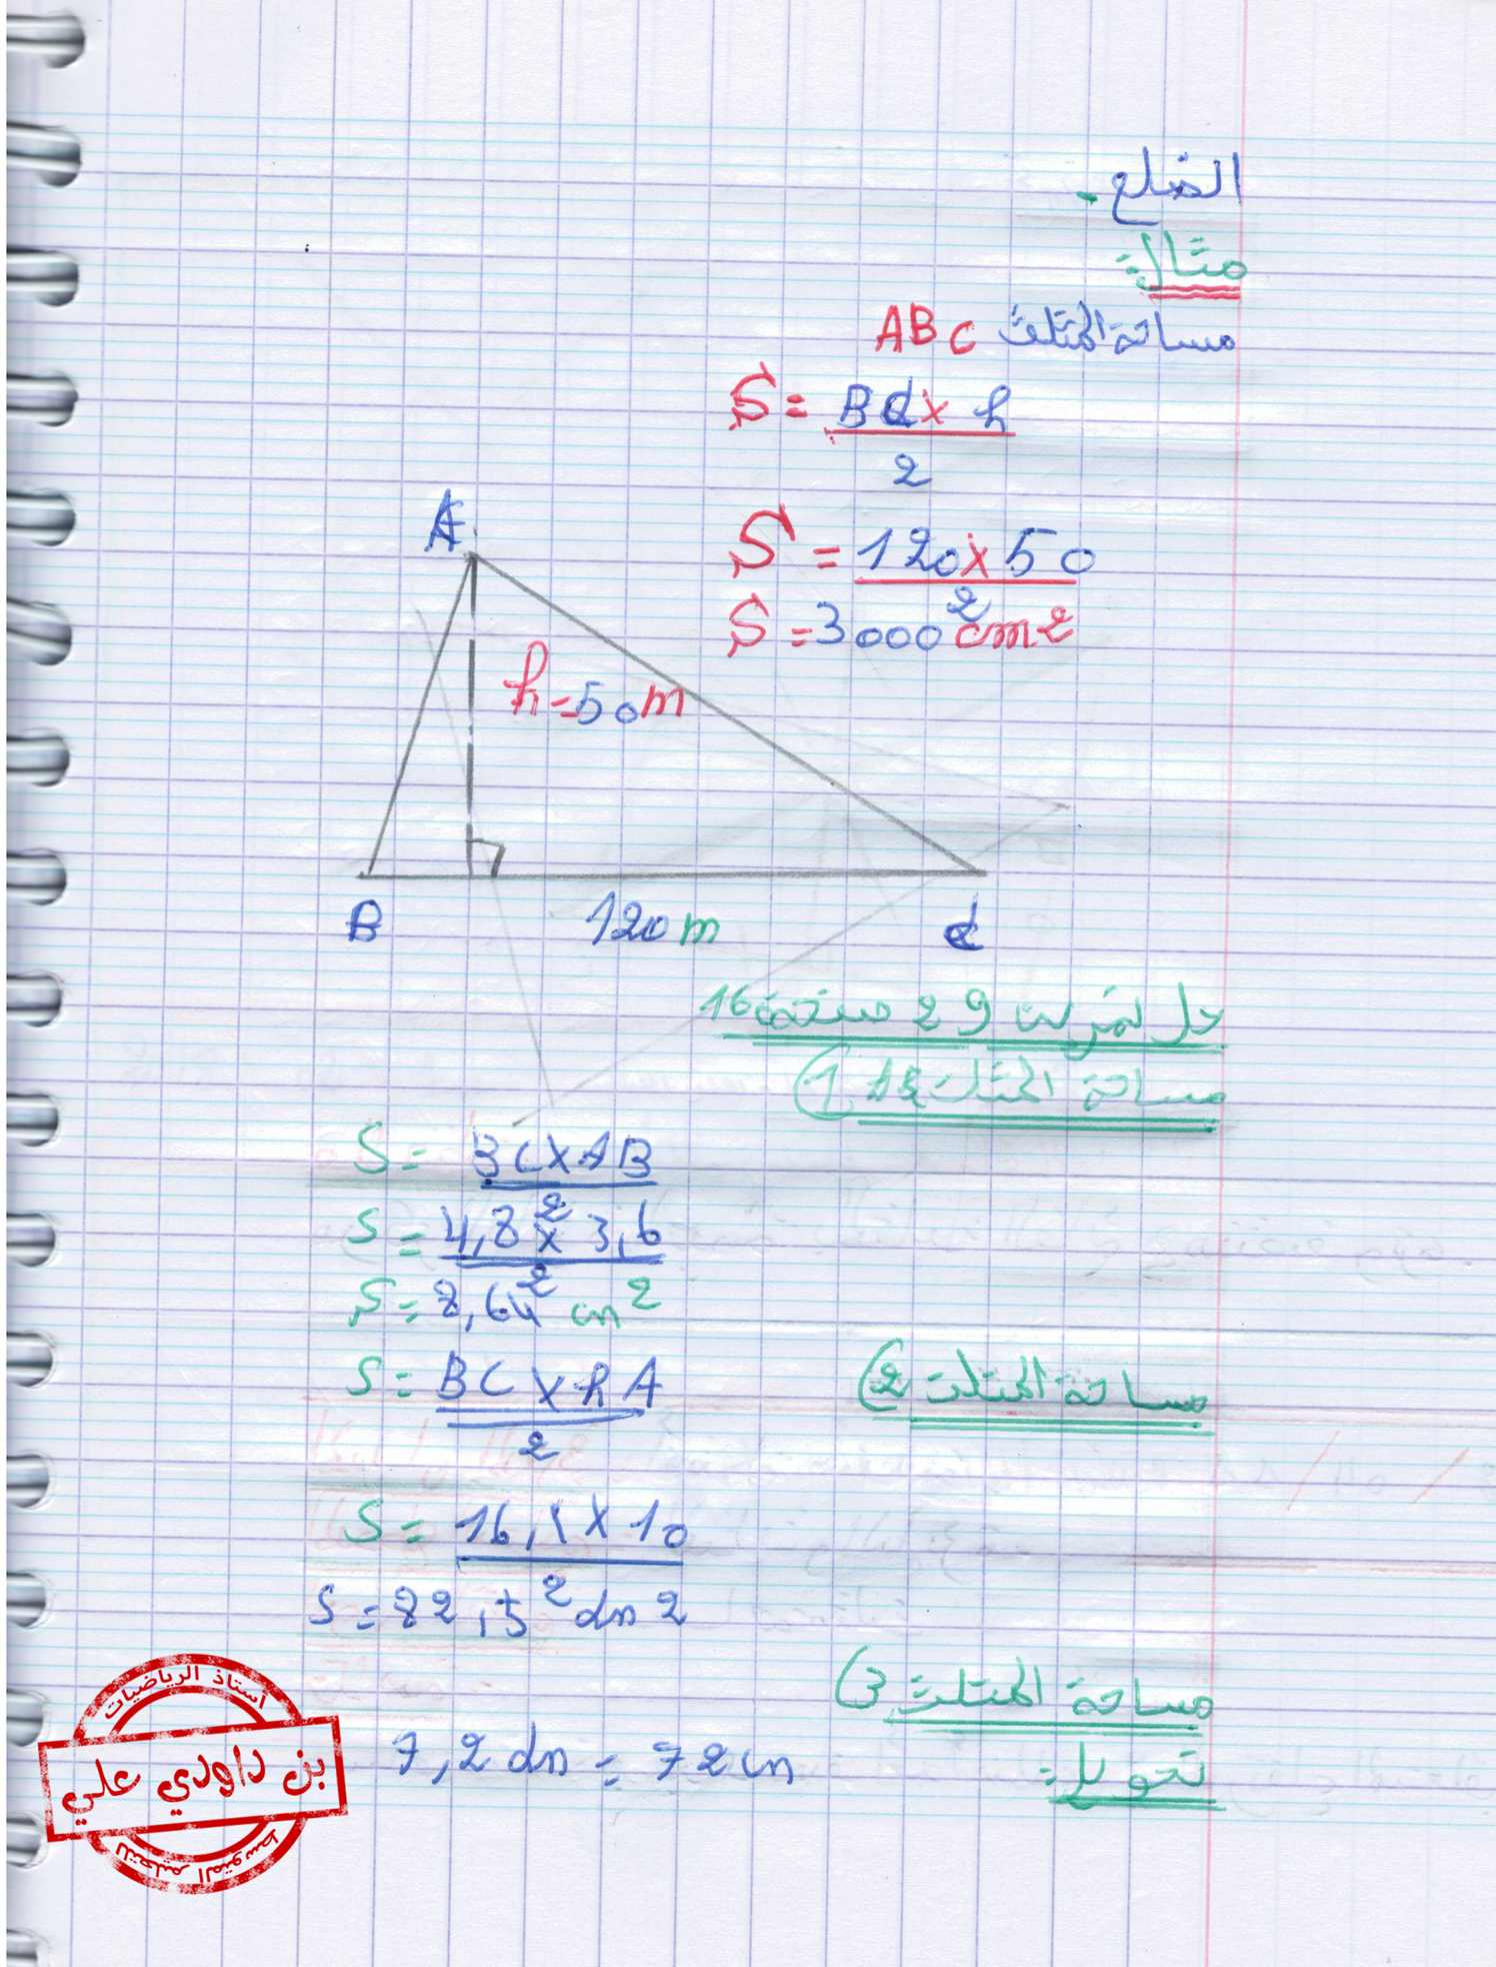 الضلع.
مثال:
مساحة المثلث ABC
S = BC x h
2
S = 120 x 50
2
S = 3000 cm2
A
h = 50 m
B 120 m C
حل تمرين 29 صفحة 16
مساحة المثلث (1
S = BC x AB
2
S = 4,8 x 3,6
2
S = 8,64 cm2
مساحة المثلث (2
S = BC x hA
2
S = 16, x 10
2
S = 82,5 dm2
مساحة المثلث (3
تحويل:
7,2 dm = 72 cm
أستاذ الرياضيات
بن داودي علي
للتعليم المتوسط